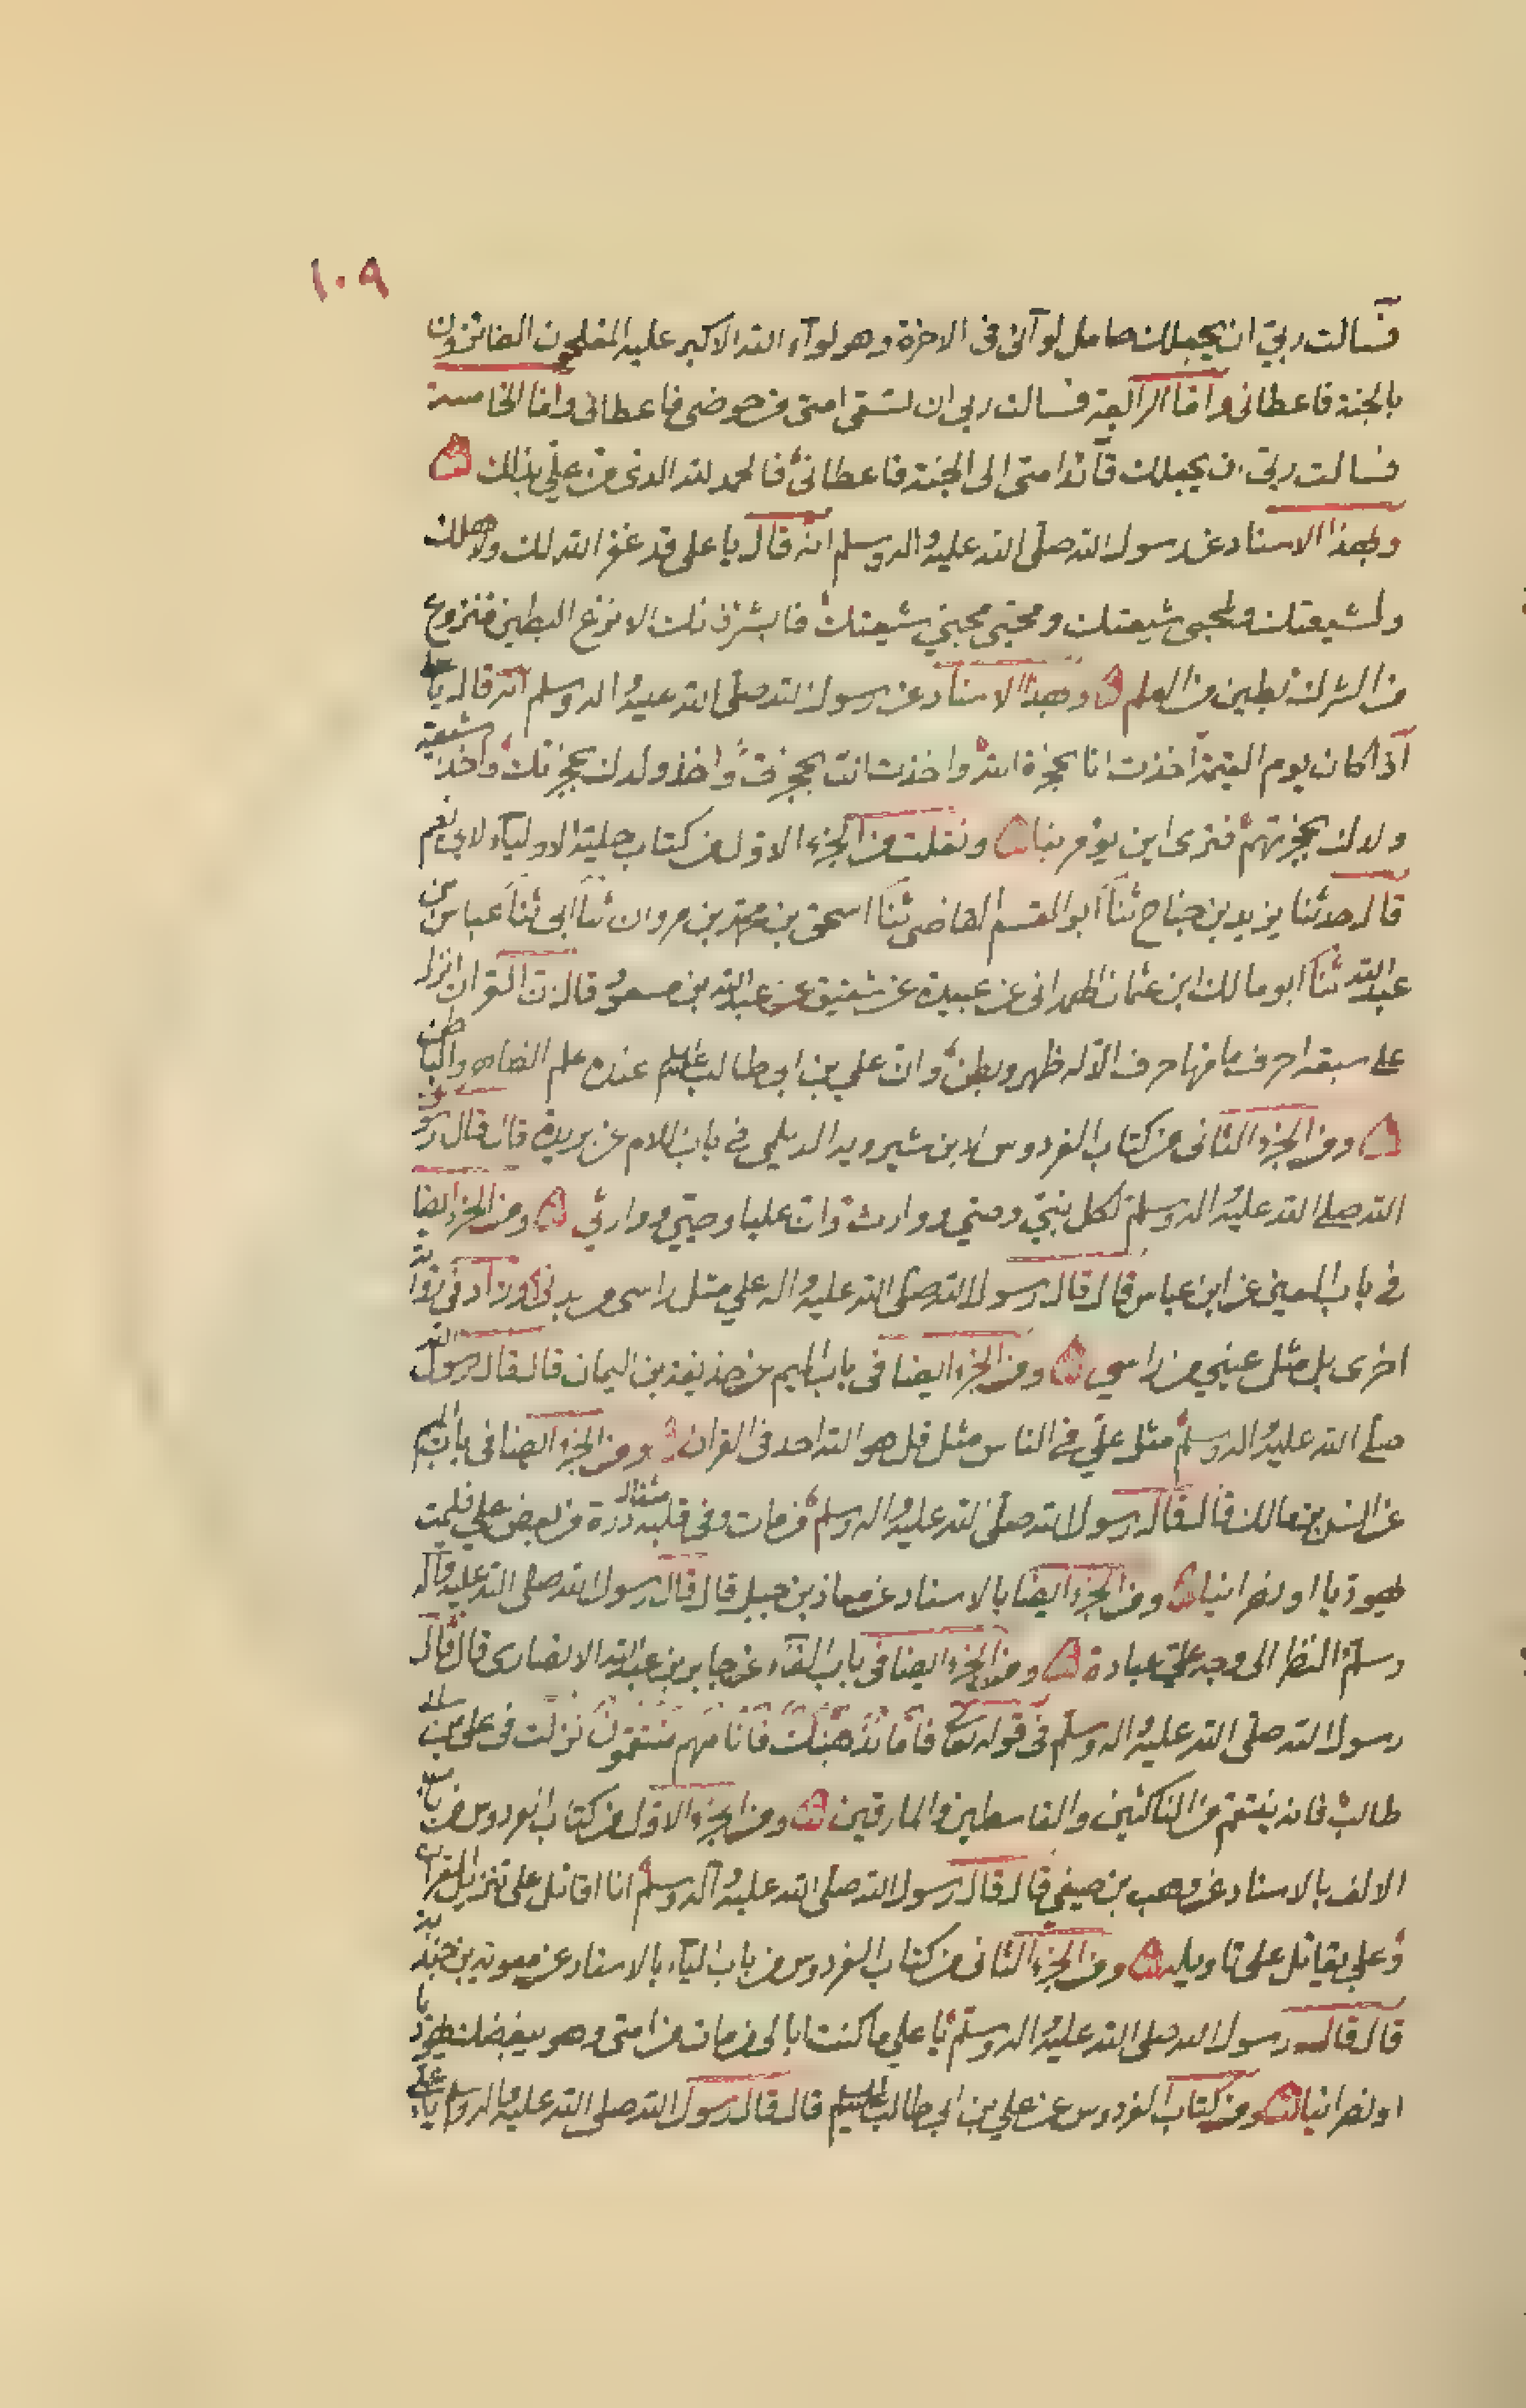 ١٠٩
فسالت ربي ان يجعلك حامل لوآئى فى الاخرة وهو لوآء الله الاكبر عليه المفلحون الفائزون
بالجنة فاعطانى واما الرابعة فسالت ربى ان تسقى امتى من حوضى فاعطانى واما الخامسة
فسالت ربى ان يجعلك قائد امتى الى الجنة فاعطانى فالحمد لله الذى من علي بذلك
وبهذا الاسناد عن رسول الله صلى الله عليه واله وسلم انه قال يا على قد غفر الله لك ولاهلك
ولشيعتك ولمحبى شيعتك ومحبى محبي شيعتك فابشر فانك الانزع البطين منزوع
من الشرك بطين من العلم وبهذا الاسناد عن رسول الله صلى الله عليه واله وسلم انه قال يا على
اذا كان يوم القيمة اخذت انا بحجزة الله واخذت انت بحجزتى واخذ ولدك بحجزتك واخذ شيعة
ولدك بحجزتهم فترى اين يؤمر بنا ونقلت من الجزء الاول من كتاب حلية الاولياء لابى نعيم
قال حدثنا يزيد بن جناح ثنا ابو القسم القاضى ثنا اسحق بن محمد بن مروان ثنا ابى ثنا عباس بن
عبد الله ثنا ابو مالك ابن عثمان الهمدانى عن عبيدة عن شقيق عن عبد الله بن مسعود قال ان القران انزل
على سبعة احرف ما منها حرف الا له ظهر وبطن وان علي بن ابى طالب عليه السلم عنده علم الظاهر والباطن
ومن الجزء الثانى من كتاب الفردوس لابن شيرويه الديلمي فى باب اللام عن بريدة قال قال رسول
الله صلى الله عليه واله وسلم لكل نبي وصي ووارث وان عليا وصيي ووارثي ومن الجزء ايضا
فى باب العين عن ابن عباس قال قال رسول الله صلى الله عليه واله علي مثل راسى من بدنى وزاد فى رواية
اخرى بل مثل عيني من راسي ومن الجزء ايضا فى باب الميم عن حذيفة بن اليمان قال قال رسول الله
صلى الله عليه واله وسلم مثل علي فى الناس مثل قل هو الله احد فى القران ومن الجزء ايضا فى باب الميم
عن انس بن مالك قال قال رسول الله صلى الله عليه واله وسلم من مات وفى قلبه مثقال ذرة من بغض علي فليمت
يهوديا او نصرانيا ومن الجزء ايضا بالاسناد عن معاذ بن جبل قال قال رسول الله صلى الله عليه واله
وسلم النظر الى وجه علي عبادة ومن الجزء ايضا فى باب الفاء عن جابر بن عبد الله الانصارى قال قال
رسول الله صلى الله عليه واله وسلم فى قوله تعالى فاما نذهبن بك فانا منهم منتقمون نزلت فى على بن ابى
طالب فانه ينتقم من الناكثين والقاسطين والمارقين ومن الجزء الاول من كتاب الفردوس من باب
الالف بالاسناد عن وهب بن صيفى قال قال رسول الله صلى الله عليه واله وسلم انا اقاتل على تنزيل القران
وعلي يقاتل على تاويله ومن الجزء الثانى من كتاب الفردوس من باب الياء بالاسناد عن معوية بن حيدة
قال قال رسول الله صلى الله عليه واله وسلم يا علي ما كنت ابالى من مات من امتى وهو يبغضك يهوديا
او نصرانيا ومن كتاب الفردوس عن علي بن ابى طالب عليه السلم قال قال رسول الله صلى الله عليه واله وسلم يا على